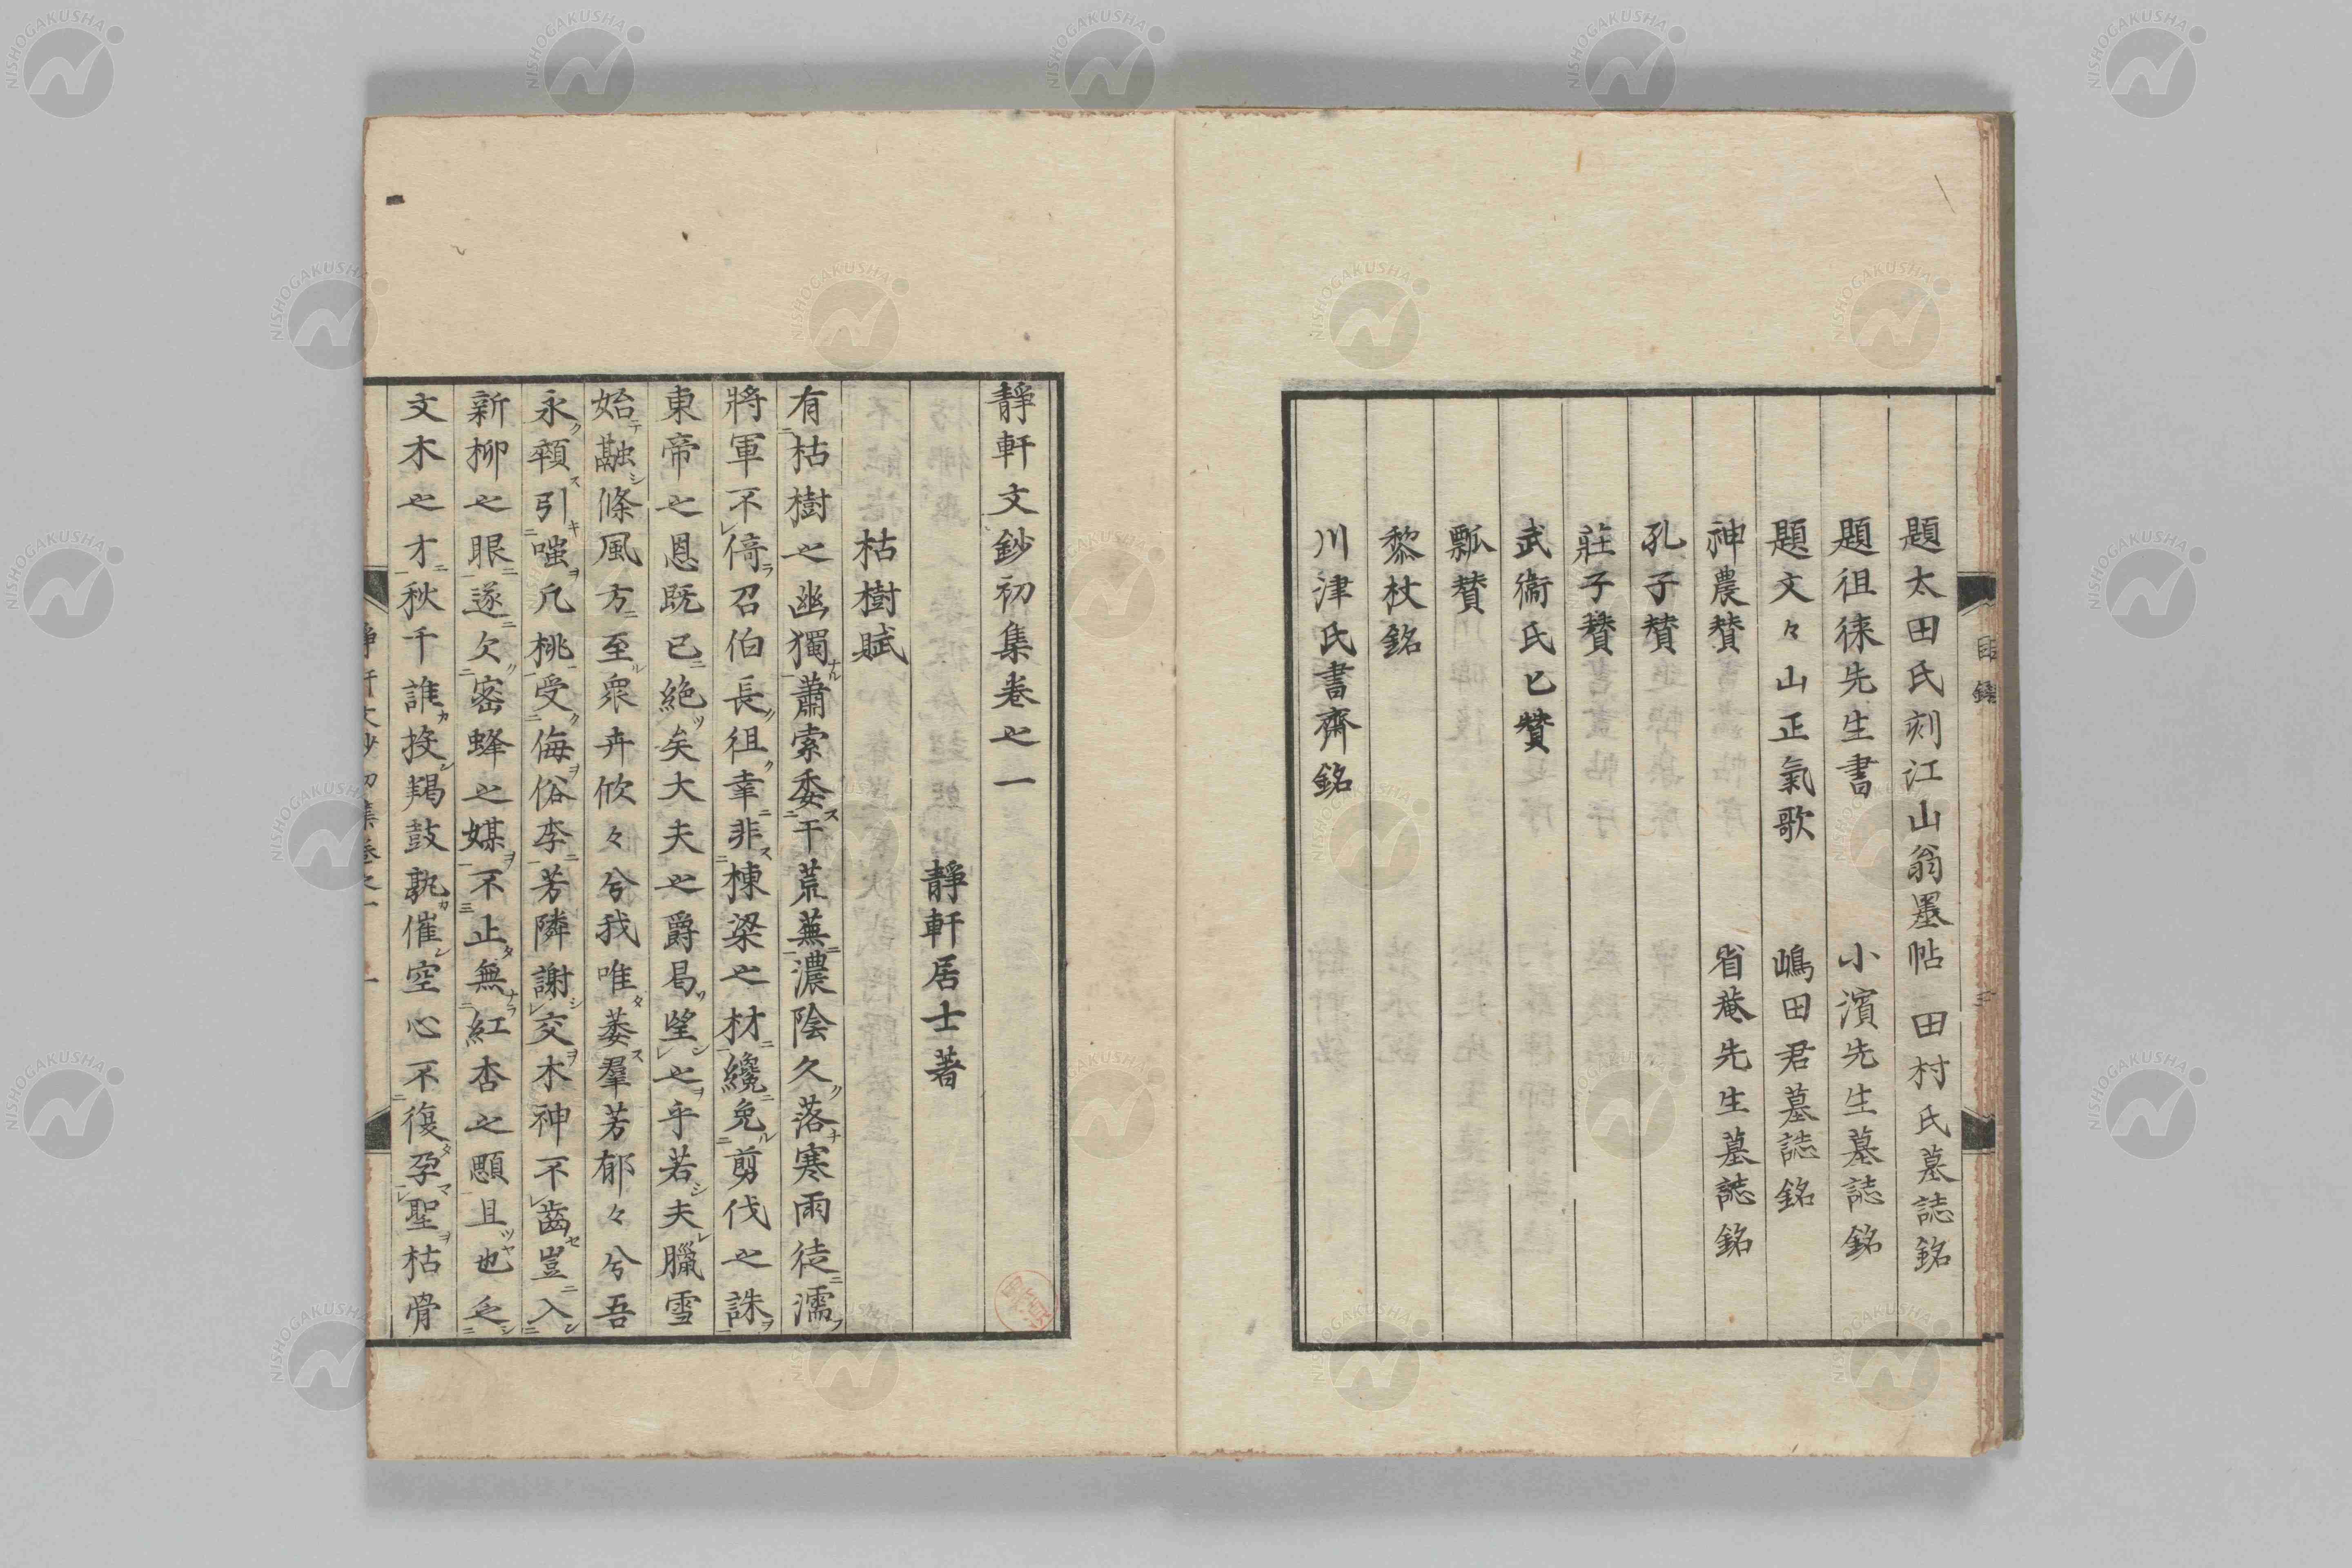 目錄
題太田氏刻江山翁墨帖 田村氏墓誌銘
題徂徠先生書 小濱先生墓誌銘
題文々山正氣歌 嶋田君墓誌銘
神農賛 省菴先生墓誌銘
孔子賛
莊子賛
武衞氏匕賛
瓢賛
黎杖銘
川津氏書齊銘
靜軒文鈔初集卷之一
靜軒居士著
枯樹賦
有枯樹之幽獨蕭索委干荒蕪濃陰久落寒雨徒濡
將軍不倚召伯長徂幸非棟梁之材纔免剪伐之誅
東帝之恩既已絶矣大夫之爵曷望之乎若夫臘雪
始融條風方至衆卉攸々兮我唯萎羣芳郁々兮吾
永顇引嗤凡桃受侮俗李芳隣謝交木神不齒豈入
新柳之眼遂欠密蜂之媒不止無紅杏之顋且也乏
文木之才秋千誰投羯鼓孰催空心不復孕聖枯骨
NISHOGAKUSHA